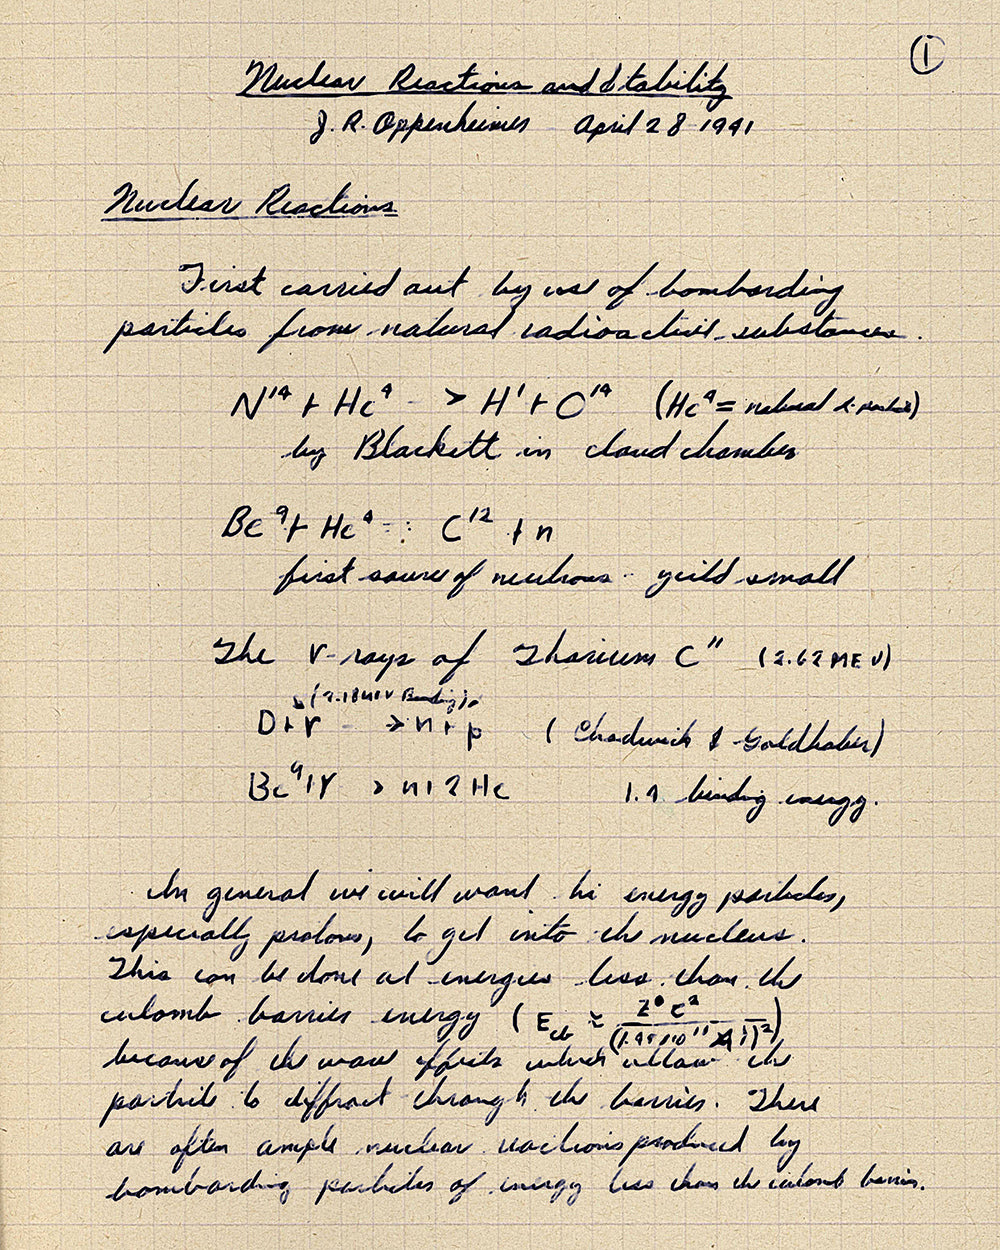 ①
Nuclear Reactions and Stability
J. R. Oppenheimer April 28 1941
Nuclear Reactions
First carried out by use of bombarding
particles from natural radioactive substances.
N¹⁴ + He⁴ -> H¹ + O¹⁴ (He⁴ = natural α particle)
by Blackett in cloud chamber
Be⁹ + He⁴ -: C¹² + n
first source of neutrons - yeild small
The γ-rays of Thorium C" (2.62 MEV)
(2.18 MEV Binding)
D + γ -> n + p (Chadwick & Goldhaber)
Be⁹ + γ > n + 2He 1.4 binding energy.
In general we will want hi energy particles,
especially protons, to get into the nucleus.
This can be done at energies less than the
culomb barrier energy (E ≈ Z e² / (
because of the wave effects which allow the
particle to diffract through the barrier. There
are often ample nuclear reactions produced by
bombarding particles of energy less than the culomb barrier.